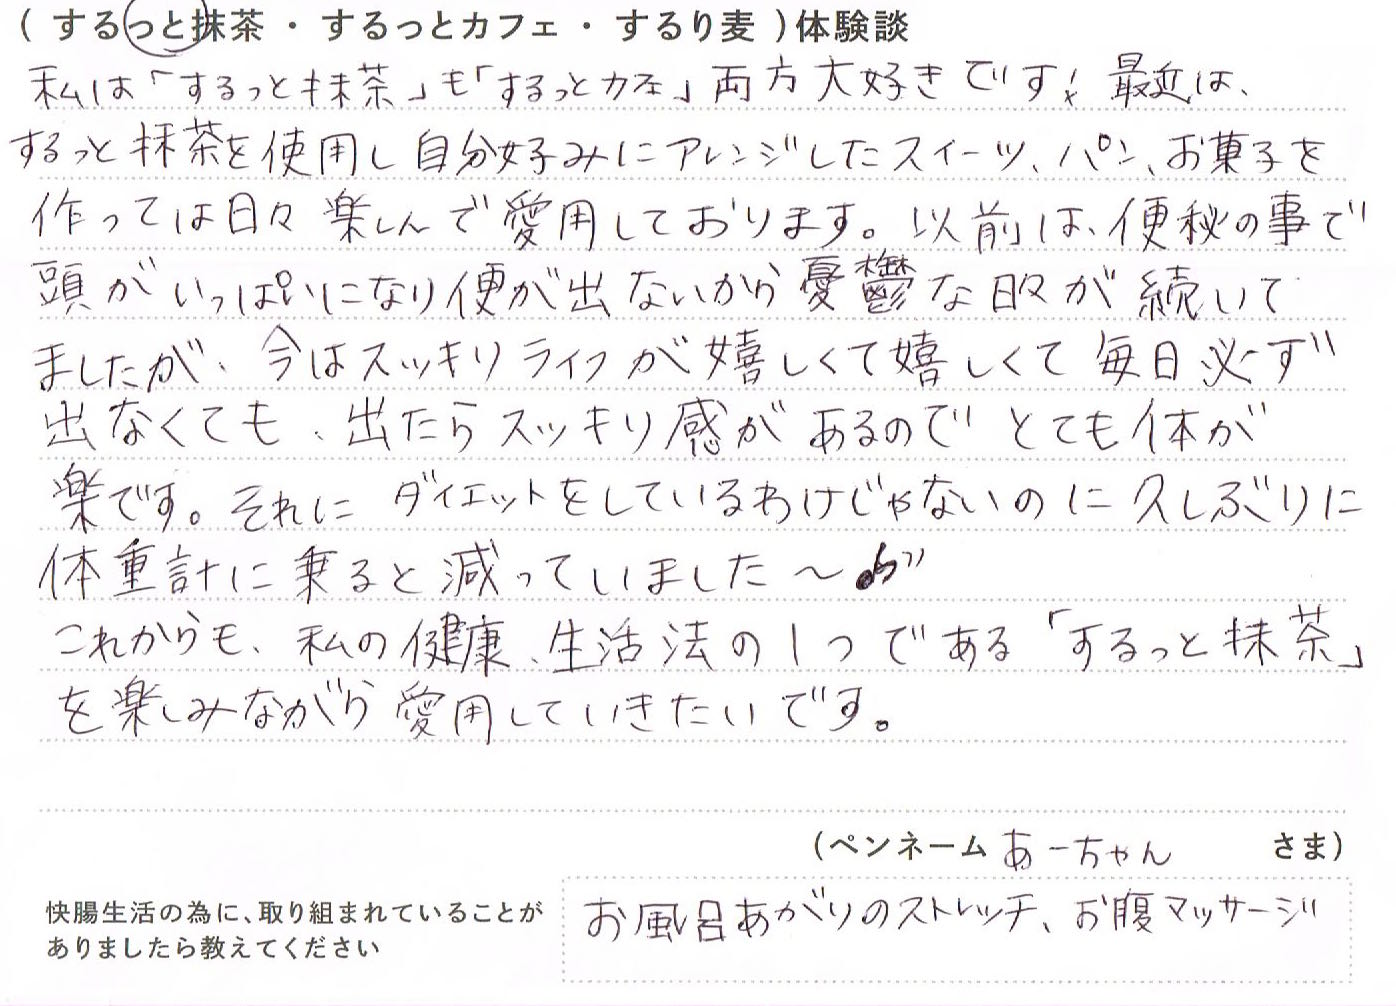 ( するっと抹茶 ・ するっとカフェ ・ するり麦 ) 体験談
私は「するっと抹茶」も「するっとカフェ」両方大好きです! 最近は、
するっと抹茶を使用し自分好みにアレンジしたスイーツ、パン、お菓子を
作っては日々楽しんで愛用しております。以前は、便秘の事で
頭がいっぱいになり便が出ないから憂鬱な日々が続いて
ましたが、今はスッキリライフが嬉しくて嬉しくて毎日必ず
出なくても、出たらスッキリ感があるのでとても体が
楽です。それにダイエットをしているわけじゃないのに久しぶりに
体重計に乗ると減っていました～♪
これからも、私の健康、生活法の1つである「するっと抹茶」
を楽しみながら愛用していきたいです。
(ペンネーム あーちゃん さま)
快腸生活の為に、取り組まれていることが
ありましたら教えてください
お風呂あがりのストレッチ、お腹マッサージ